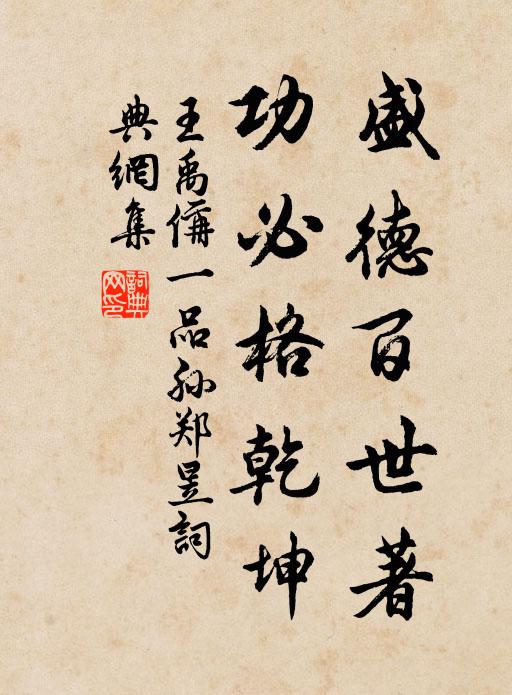 盛德百世著
功必格乾坤
王禹偁一品孙郑昱詞
典網集
詞典
网印